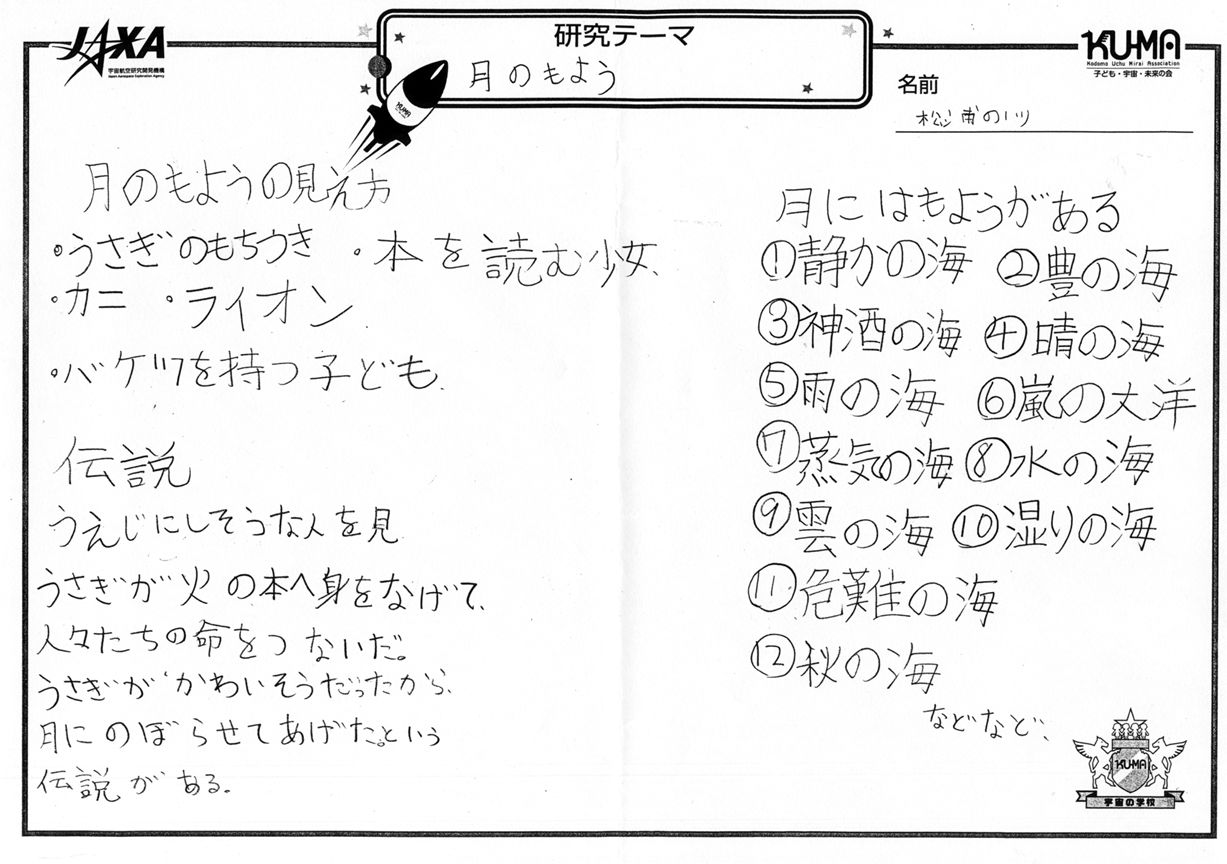 JAXA
宇宙航空研究開発機構
Japan Aerospace Exploration Agency
研究テーマ
月のもよう
KUMA
KU-MA
Kodomo Uchu Mirai Association
子ども・宇宙・未来の会
名前
月のもようの見え方
・うさぎのもちつき ・本を読む少女、
・カニ ・ライオン
・バケツを持つ子ども、
伝説
うえじにしそうな人を見
うさぎが火の本へ身をなげて、
人々たちの命をつないだ。
うさぎがかわいそうだったから、
月にのぼらせてあげた。という
伝説がある。
月にはもようがある
①静かの海 ②豊の海
③神酒の海 ④晴の海
⑤雨の海 ⑥嵐の大洋
⑦蒸気の海 ⑧氷の海
⑨雲の海 ⑩湿りの海
⑪危難の海
⑫秋の海
などなど、
KU-MA
宇宙の学校